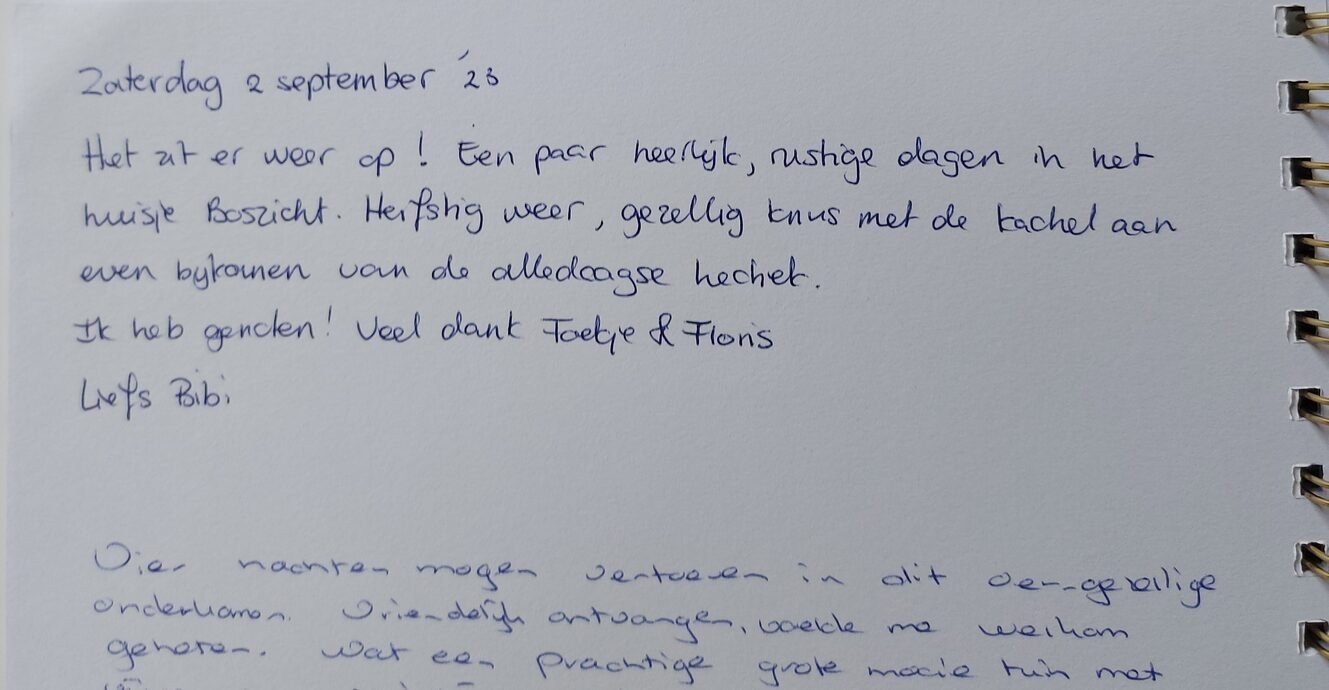 Zaterdag 2 september '23
Het zit er weer op! Een paar heerlijk, rustige dagen in het
huisje Boszicht. Herfstig weer, gezellig knus met de kachel aan
even bijkomen van de alledaagse hectiek.
Ik heb genoten! Veel dank Toetje & Floris
Liefs Bibi
Vier nachten mogen vertoeven in dit oer-gezellige
onderkomen. Vriendelijk ontvangen, voelde me welkom
genoten. Wat een prachtige grote mooie tuin met